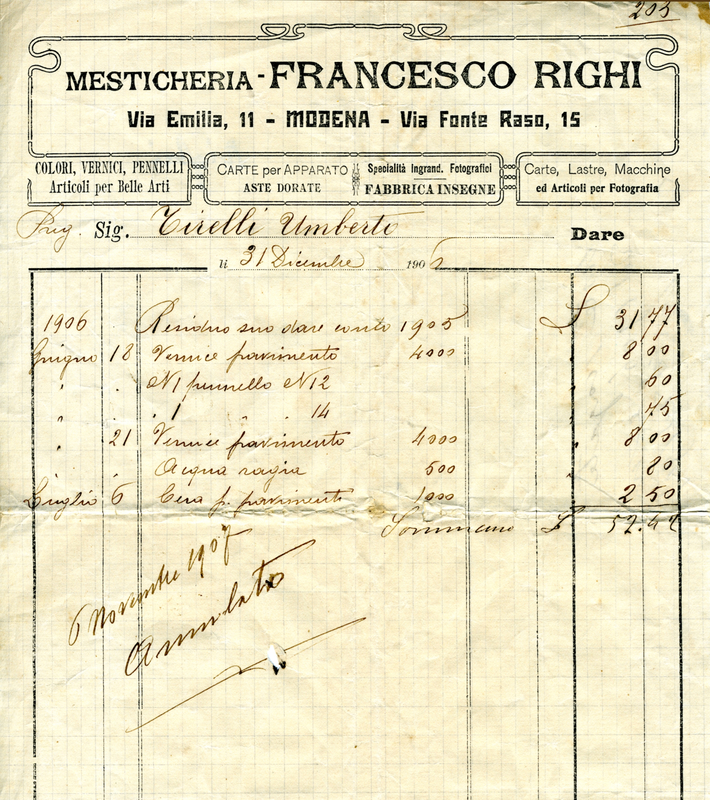 203
MESTICHERIA - FRANCESCO RIGHI
Via Emilia, 11 - MODENA - Via Fonte Raso, 15
COLORI, VERNICI, PENNELLI
Articoli per Belle Arti
CARTE per APPARATO
ASTE DORATE
Specialità Ingrand. Fotografici
FABBRICA INSEGNE
Carte, Lastre, Macchine
ed Articoli per Fotografia
Preg. Sig. Tirelli Umberto Dare
li 31 Dicembre 1906
1906 Residuo suo dare conto 1905 £ 31 77
Giugno 18 Vernice pavimento 4000 " 8 00
" " N 1 pennello N 12 " 60
" " " 1 " " 14 " 75
" 21 Vernice pavimento 4000 " 8 00
" Acqua ragia 500 " 80
Luglio 6 Cera p. pavimento 1000 2 50
Sommano £ 52.42
6 Novembre 1907
Annulato